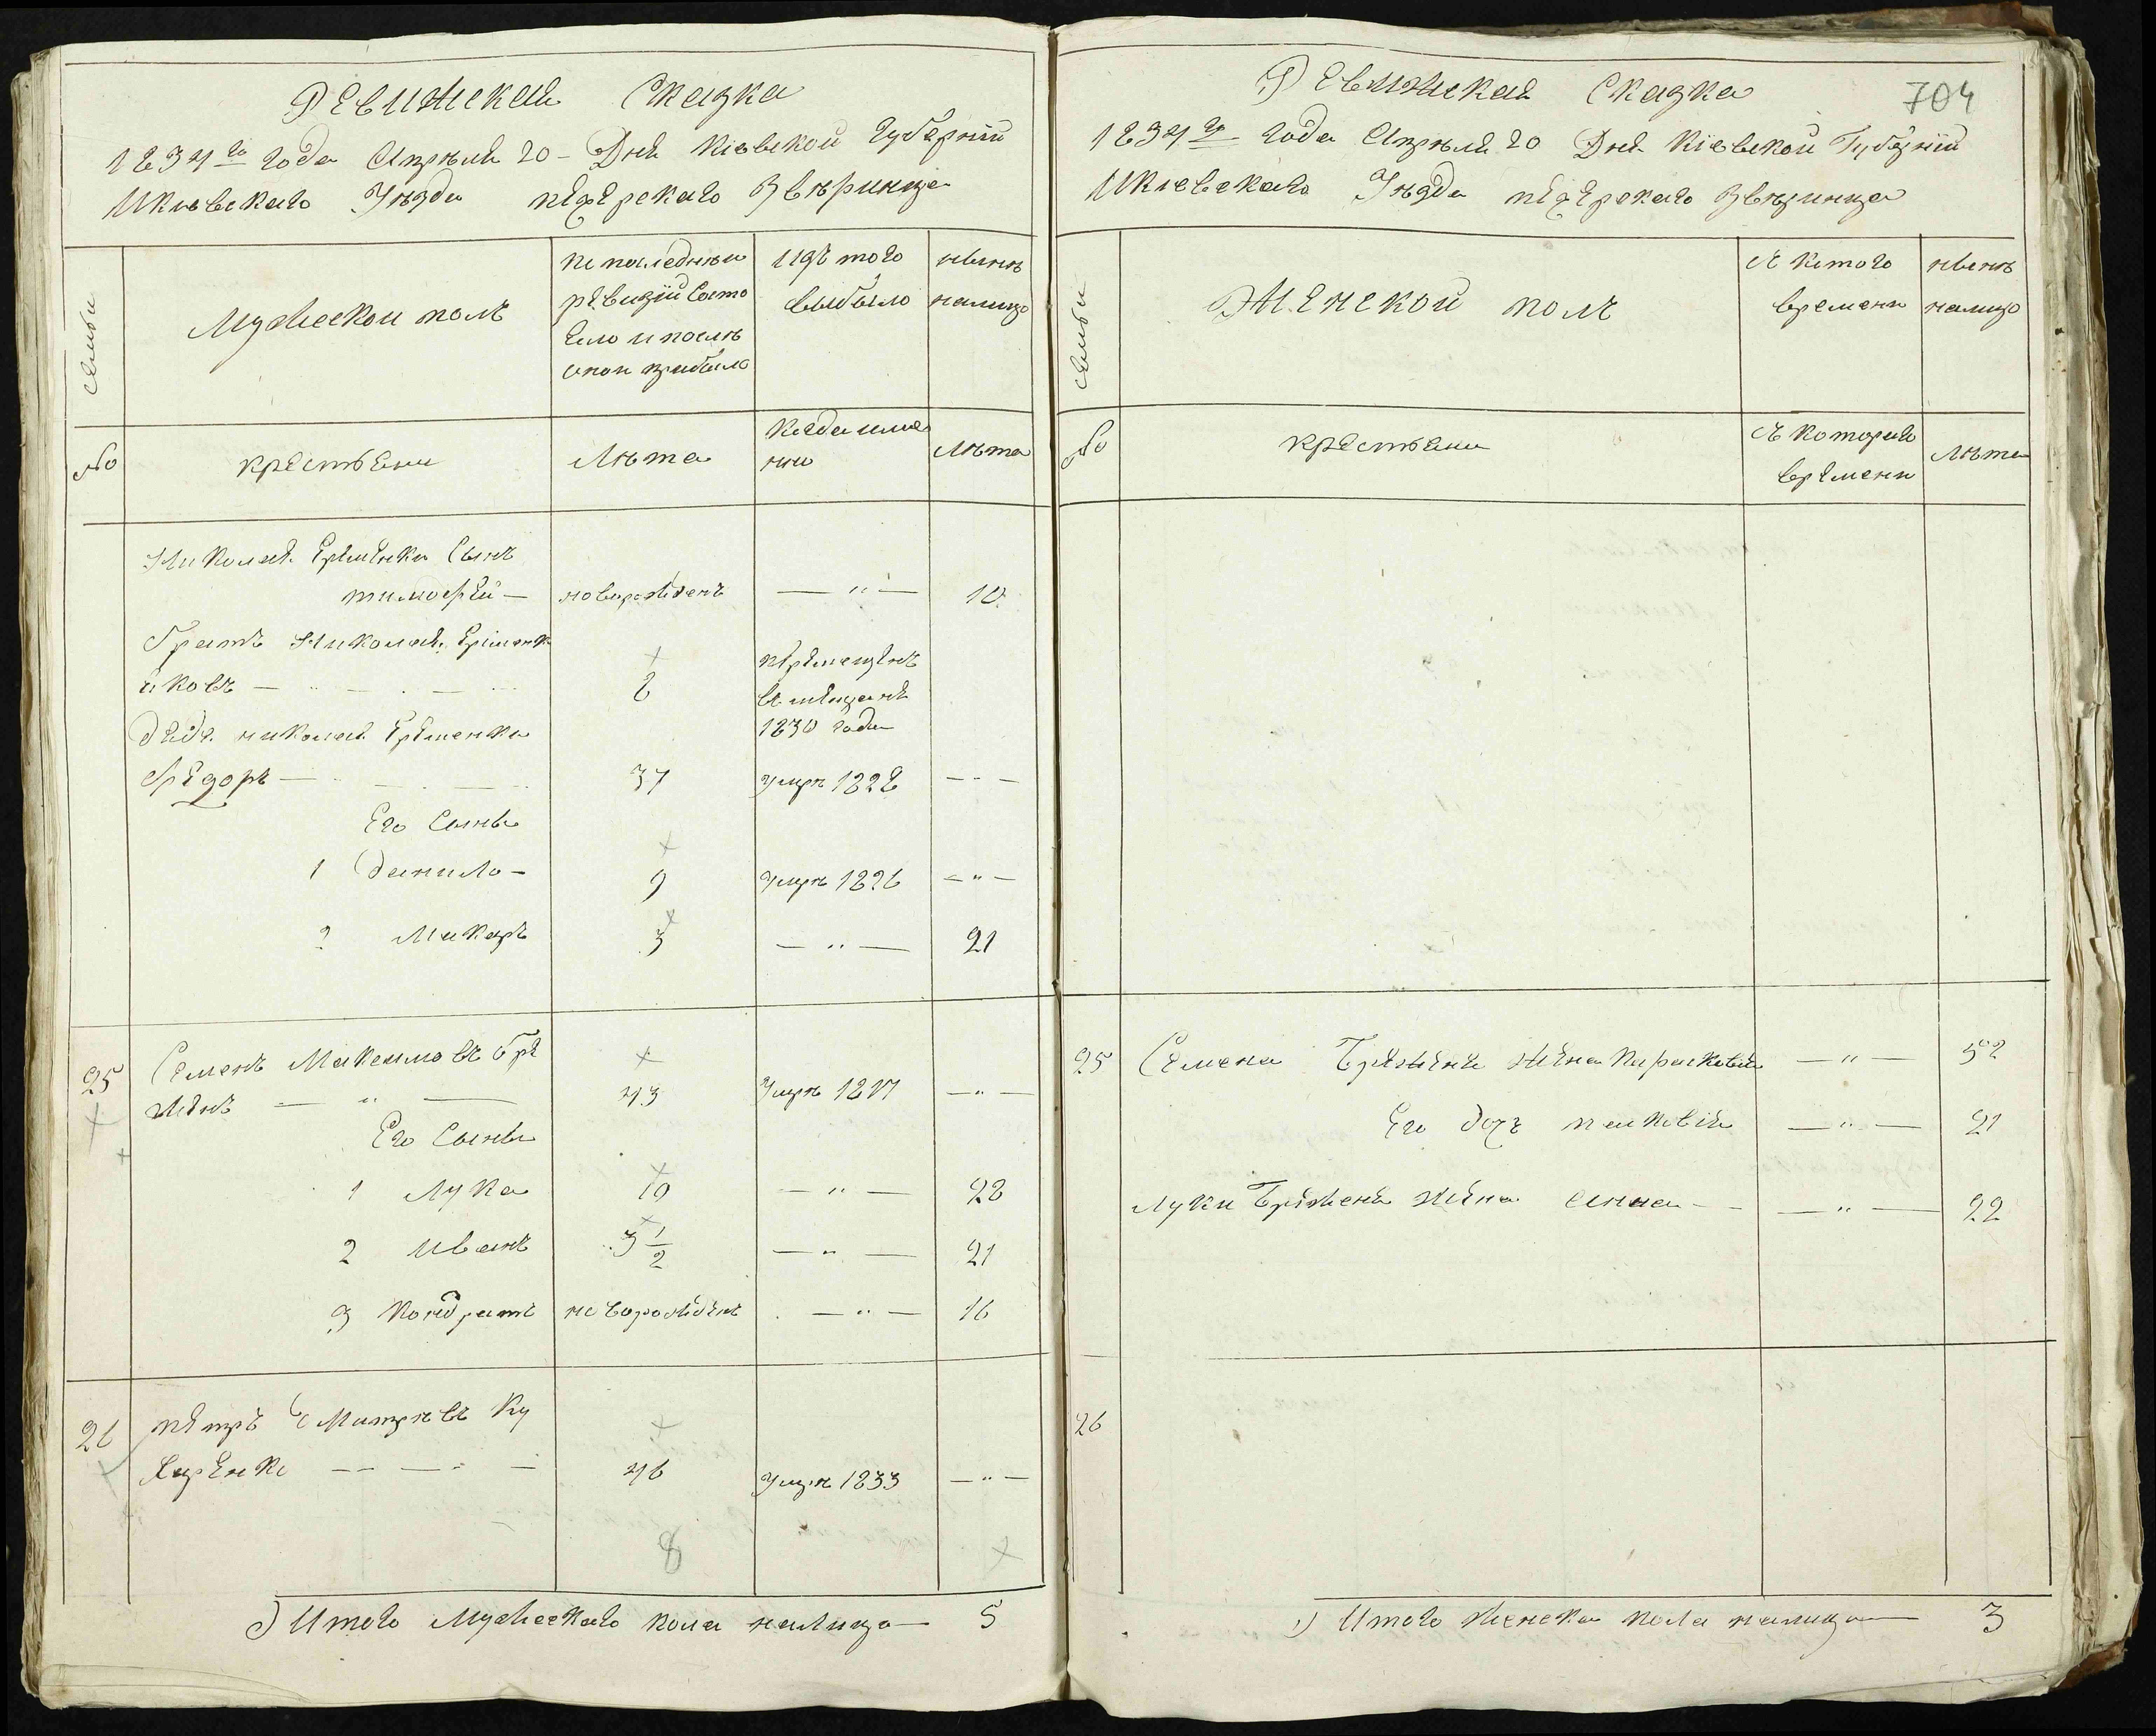 Ревижская Сказка
1834го года Апреля 20 Дня Кіевской Губерніи
И Кіевскаго Уезда печерскаго Зверинца
семьи
Мужеской полъ
По последней
ревизіи Состо
яло и после
оной прибыло
Изъ того
выбыло
ныне
налицо
№
крестьяни
Лета
Когда име
нно
Лета
Николая Еременка Сынъ
тимофей —
новорожденъ
— " —
10
братъ Николая Еременк
яковъ —
8
перемещенъ
въ мещане
1830 года
дядя николая Еременка
федоръ —
37
умре 1828
— " —
Его Сынве
1 данило —
9
умре 1826
— " —
2 Макаръ
3
— " —
21
25
Семенъ Максимовъ бре
женъ — " —
43
умре 1817
— " —
Его Сынве
1 Лука
10
— " —
28
2 иванъ
3 1/2
— " —
21
3 кондратъ
новорожденъ
— " —
16
26
петръ Дмитревъ Ку
харенко — —
46
умре 1833
— " —
8
Итого Мужескаго пола налицо — 5
704
Ревижская Сказка
1834го года Апреля 20 Дня Кіевской Губерніи
И Кіевскаго Уезда печерскаго Зверинца
семьи
Женской полъ
временн
ныне
налицо
№
крестьяни
Съ котораго
времени
Лета
25
Семена Бреженя жена Парасковія
— " —
52
Его дочъ
— " —
21
Луки Бреженя жена анна —
— " —
22
26
Итого женска пола налицо — 3